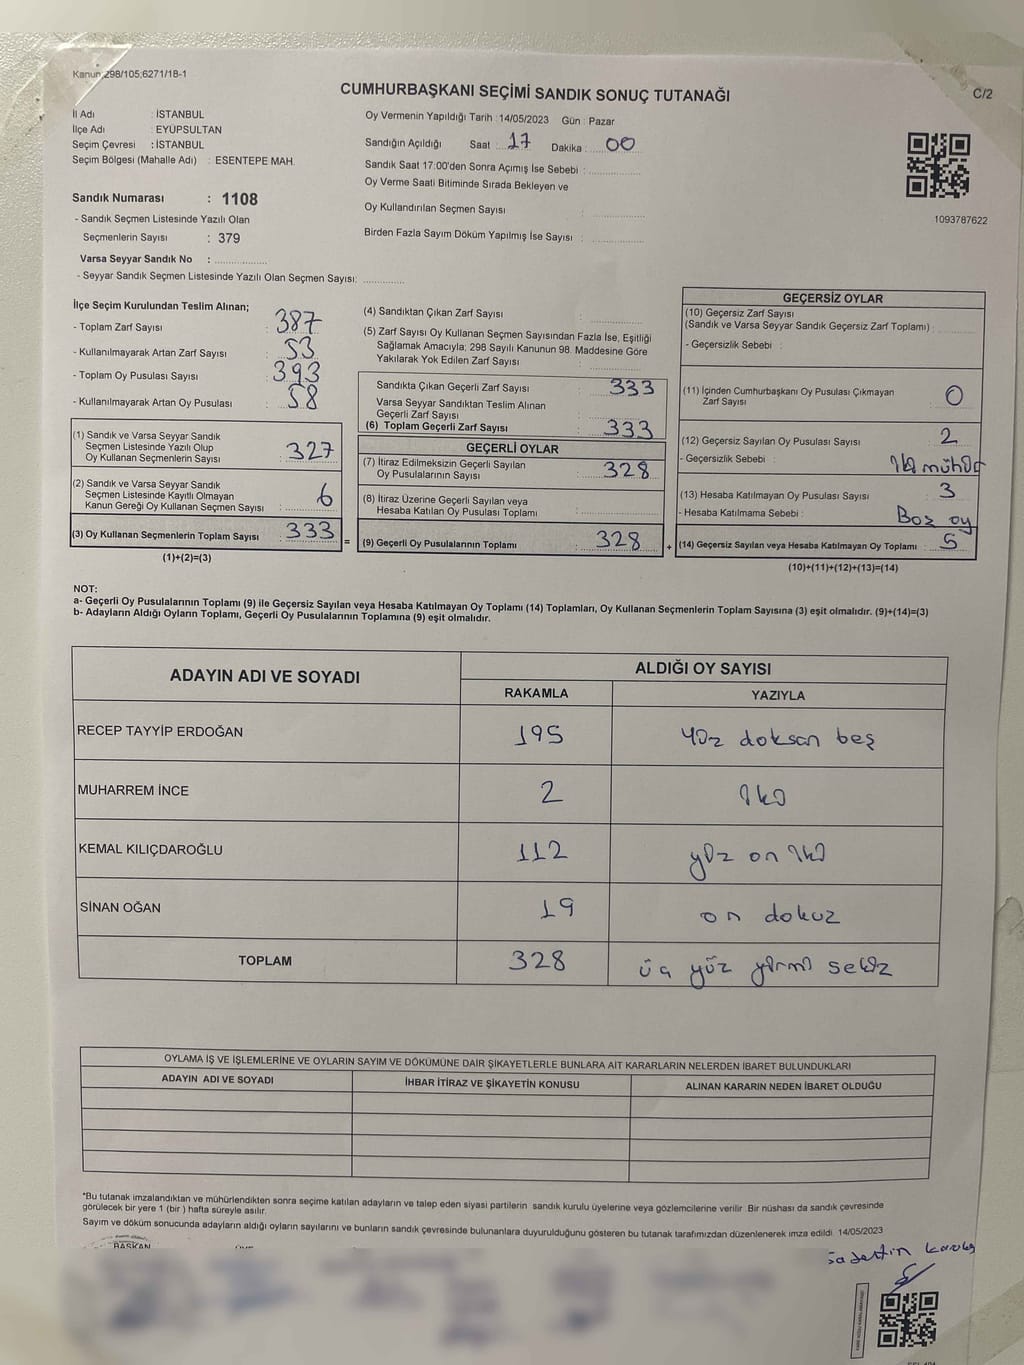 Kanun 298/105;6271/18-1
CUMHURBAŞKANI SEÇİMİ SANDIK SONUÇ TUTANAĞI
C/2
İl Adı : İSTANBUL
İlçe Adı : EYÜPSULTAN
Seçim Çevresi : İSTANBUL
Seçim Bölgesi (Mahalle Adı) : ESENTEPE MAH.
Sandık Numarası : 1108
- Sandık Seçmen Listesinde Yazılı Olan
Seçmenlerin Sayısı : 379
Varsa Seyyar Sandık No :
- Seyyar Sandık Seçmen Listesinde Yazılı Olan Seçmen Sayısı:
Oy Vermenin Yapıldığı Tarih : 14/05/2023 Gün : Pazar
Sandığın Açıldığı Saat 17 Dakika : 00
Sandık Saat 17:00'den Sonra Açımış İse Sebebi :
Oy Verme Saati Bitiminde Sırada Bekleyen ve
Oy Kullandırılan Seçmen Sayısı :
Birden Fazla Sayım Döküm Yapılmış İse Sayısı :
1093787622
İlçe Seçim Kurulundan Teslim Alınan;
- Toplam Zarf Sayısı : 387
- Kullanılmayarak Artan Zarf Sayısı : 53
- Toplam Oy Pusulası Sayısı : 393
- Kullanılmayarak Artan Oy Pusulası : 58
(1) Sandık ve Varsa Seyyar Sandık
Seçmen Listesinde Yazılı Olup
Oy Kullanan Seçmenlerin Sayısı : 327
(2) Sandık ve Varsa Seyyar Sandık
Seçmen Listesinde Kayıtlı Olmayan
Kanun Gereği Oy Kullanan Seçmen Sayısı : 6
(3) Oy Kullanan Seçmenlerin Toplam Sayısı : 333
(1)+(2)=(3)
=
(4) Sandıktan Çıkan Zarf Sayısı :
(5) Zarf Sayısı Oy Kullanan Seçmen Sayısından Fazla İse, Eşitliği
Sağlamak Amacıyla; 298 Sayılı Kanunun 98. Maddesine Göre
Yakılarak Yok Edilen Zarf Sayısı :
Sandıkta Çıkan Geçerli Zarf Sayısı : 333
Varsa Seyyar Sandıktan Teslim Alınan
Geçerli Zarf Sayısı :
(6) Toplam Geçerli Zarf Sayısı : 333
GEÇERLİ OYLAR
(7) İtiraz Edilmeksizin Geçerli Sayılan
Oy Pusulalarının Sayısı : 328
(8) İtiraz Üzerine Geçerli Sayılan veya
Hesaba Katılan Oy Pusulası Toplamı :
(9) Geçerli Oy Pusulalarının Toplamı : 328
+
GEÇERSİZ OYLAR
(10) Geçersiz Zarf Sayısı
(Sandık ve Varsa Seyyar Sandık Geçersiz Zarf Toplamı) :
- Geçersizlik Sebebi :
(11) İçinden Cumhurbaşkanı Oy Pusulası Çıkmayan
Zarf Sayısı : 0
(12) Geçersiz Sayılan Oy Pusulası Sayısı : 2
- Geçersizlik Sebebi : iki mühür
(13) Hesaba Katılmayan Oy Pusulası Sayısı : 3
- Hesaba Katılmama Sebebi : Boş oy
(14) Geçersiz Sayılan veya Hesaba Katılmayan Oy Toplamı : 5
(10)+(11)+(12)+(13)=(14)
NOT:
a- Geçerli Oy Pusulalarının Toplamı (9) ile Geçersiz Sayılan veya Hesaba Katılmayan Oy Toplamı (14) Toplamları, Oy Kullanan Seçmenlerin Toplam Sayısına (3) eşit olmalıdır. (9)+(14)=(3)
b- Adayların Aldığı Oyların Toplamı, Geçerli Oy Pusulalarının Toplamına (9) eşit olmalıdır.
ADAYIN ADI VE SOYADI ALDIĞI OY SAYISI
RAKAMLA YAZIYLA
RECEP TAYYİP ERDOĞAN 195 yüz doksan beş
MUHARREM İNCE 2 iki
KEMAL KILIÇDAROĞLU 112 yüz on iki
SİNAN OĞAN 19 on dokuz
TOPLAM 328 üç yüz yirmi sekiz
OYLAMA İŞ VE İŞLEMLERİNE VE OYLARIN SAYIM VE DÖKÜMÜNE DAİR ŞİKAYETLERLE BUNLARA AİT KARARLARIN NELERDEN İBARET BULUNDUKLARI
ADAYIN ADI VE SOYADI İHBAR İTİRAZ VE ŞİKAYETİN KONUSU ALINAN KARARIN NEDEN İBARET OLDUĞU
*Bu tutanak imzalandıktan ve mühürlendikten sonra seçime katılan adayların ve talep eden siyasi partilerin sandık kurulu üyelerine veya gözlemcilerine verilir. Bir nüshası da sandık çevresinde
görülecek bir yere 1 (bir ) hafta süreyle asılır.
Sayım ve döküm sonucunda adayların aldığı oyların sayılarını ve bunların sandık çevresinde bulunanlara duyurulduğunu gösteren bu tutanak tarafımızdan düzenlenerek imza edildi. 14/05/2023
BAŞKAN